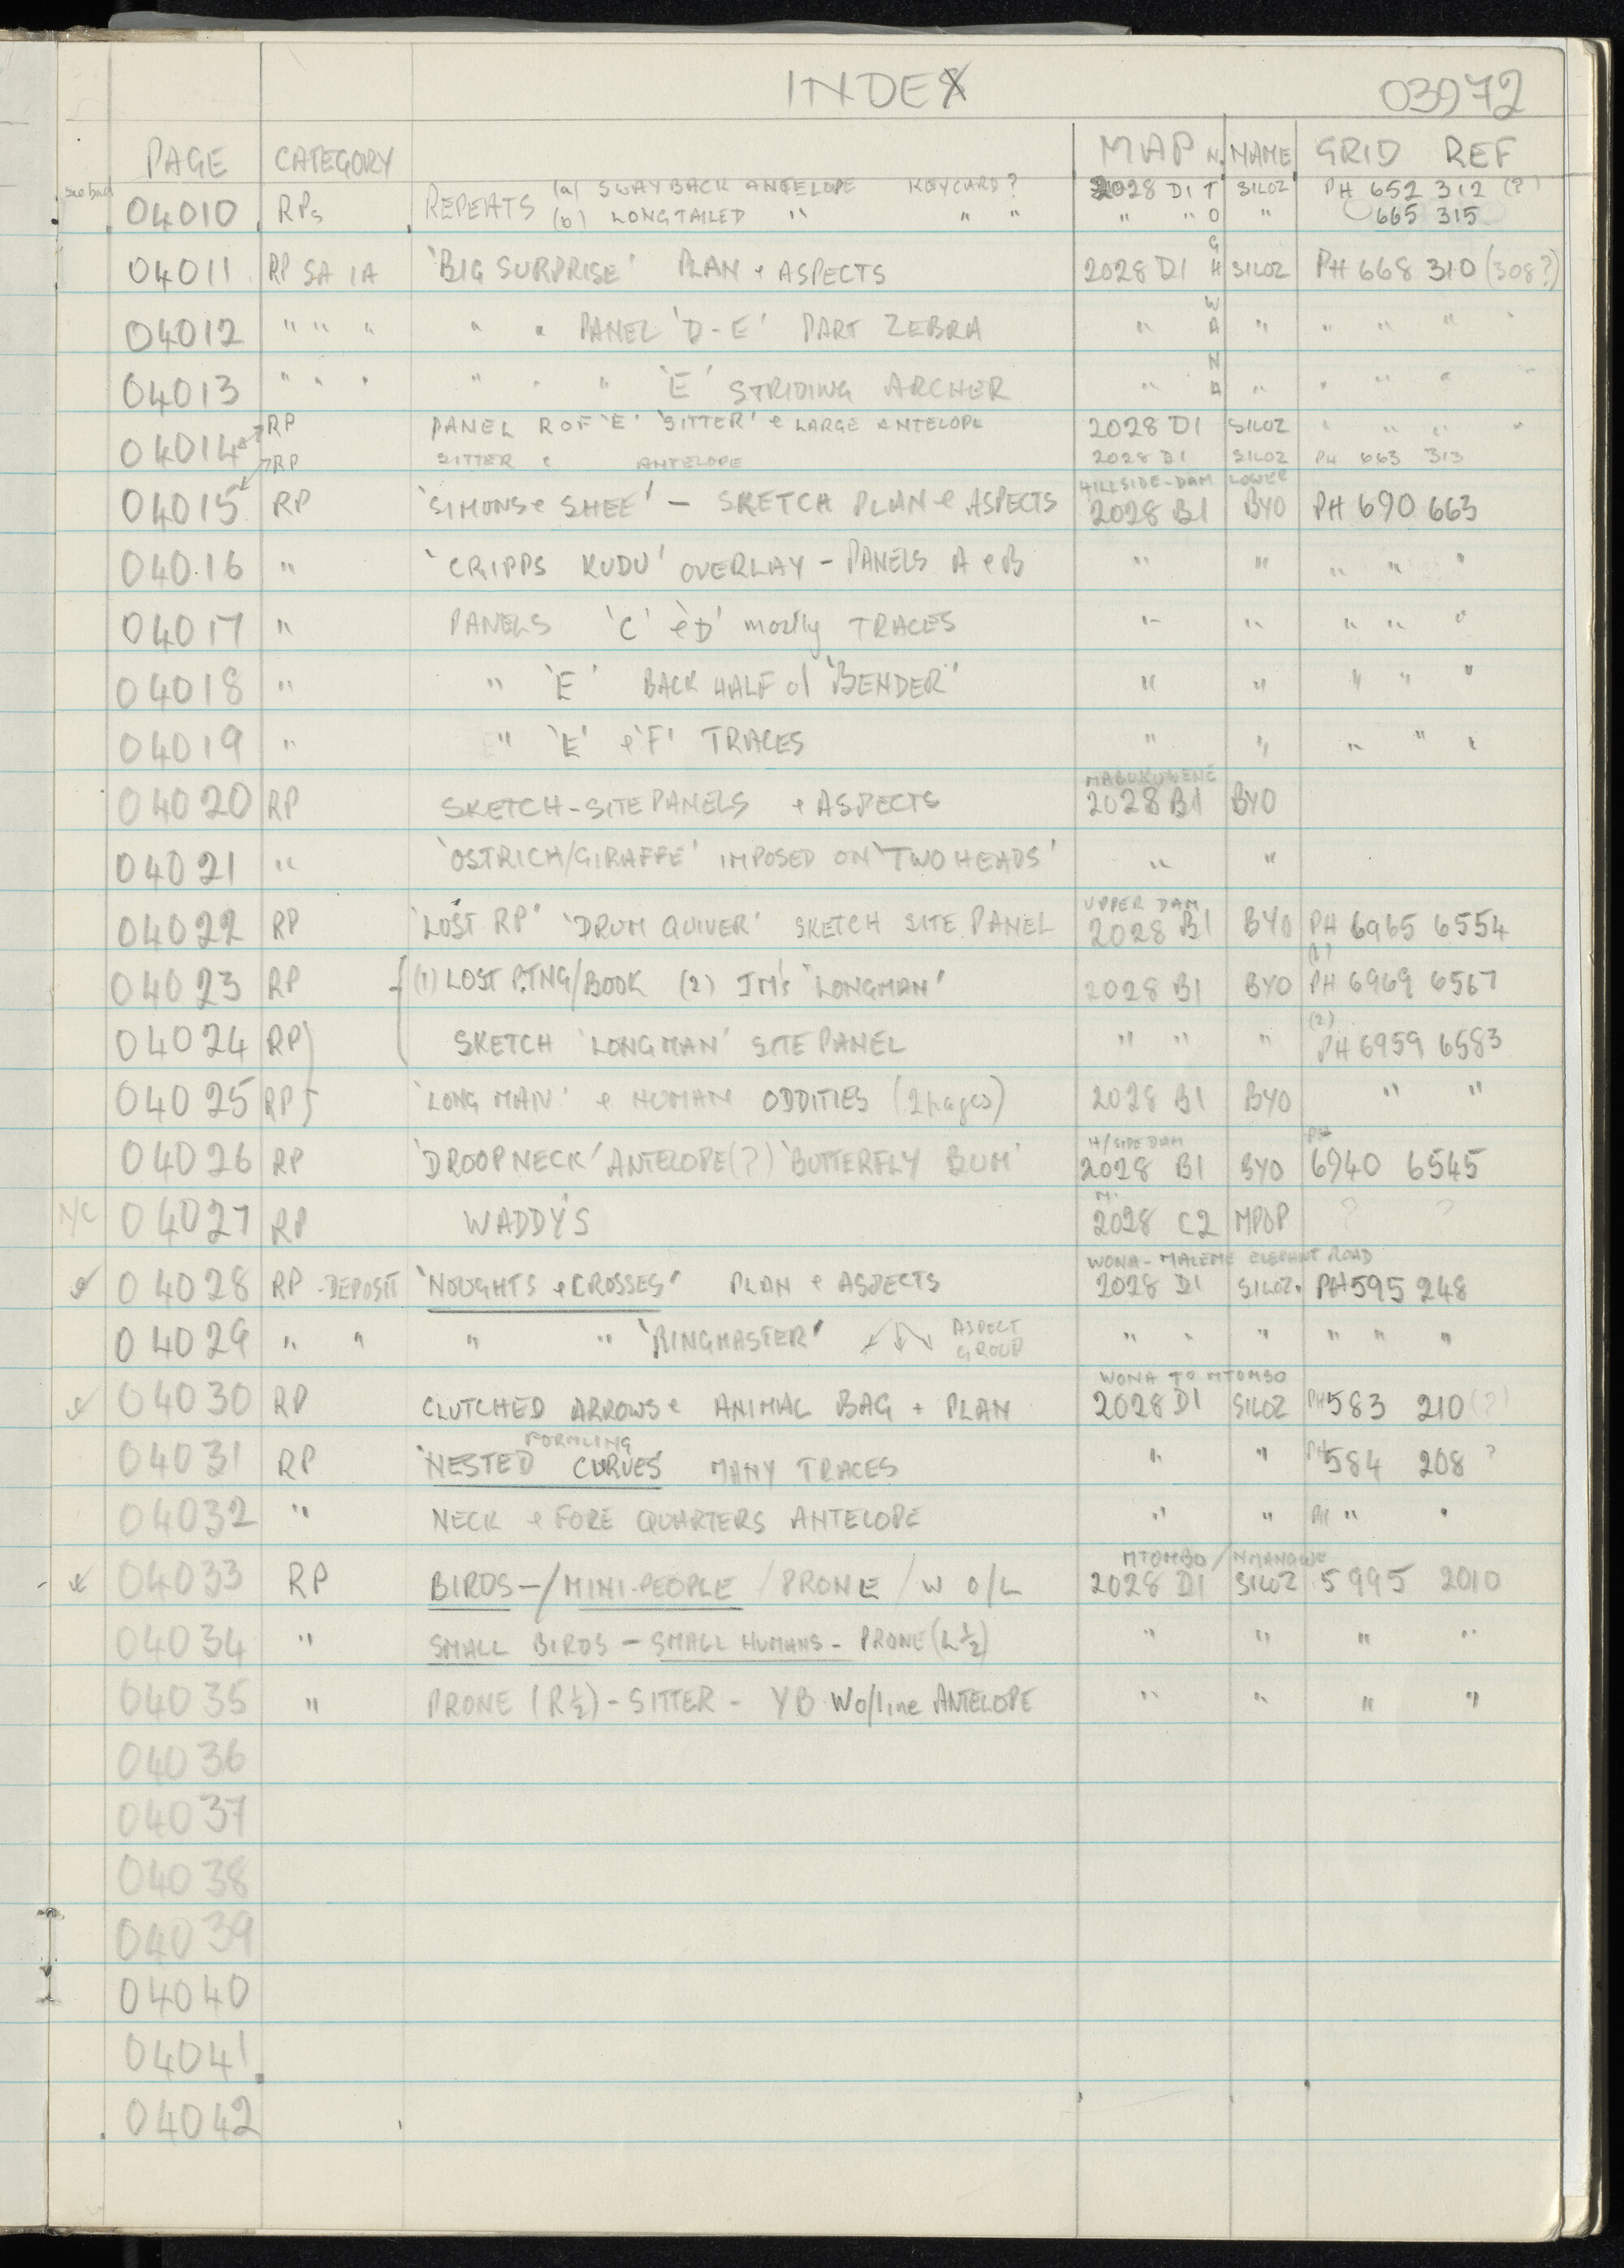 INDEX 03972
PAGE CATEGORY MAP N. NAME GRID REF
04010 RPs REPEATS (a) SWAYBACK ANTELOPE KEYCARD? 2028 D1 T SILOZ PH 652 312 (?)
(b) LONGTAILED " " " " " O " 665 315
G
04011 RP SA IA 'BIG SURPRISE' PLAN & ASPECTS 2028 D1 H SILOZ PH 668 310 (308?)
W
04012 " " " " " PANEL 'D-E' PART ZEBRA " A " " " " "
N
04013 " " " " " " 'E' STRIDING ARCHER " A " " " " "
RP PANEL R OF 'E' 'SITTER' & LARGE ANTELOPE 2028 D1 SILOZ " " " "
04014 RP SITTER & ANTELOPE 2028 D1 SILOZ PH 663 313
HILLSIDE-DAM LOWER
04015 RP 'SIMONS & SHEE' - SKETCH PLAN & ASPECTS 2028 B1 BYO PH 690 663
04016 " 'CRIPPS KUDU' OVERLAY - PANELS A & B " " " " "
04017 " PANELS 'C' & 'D' mostly TRACES " " " " "
04018 " " 'E' BACK HALF of 'BENDER' " " " " "
04019 " " 'E' & 'F' TRACES " " " " "
MABUKUWENE
04020 RP SKETCH-SITE PANELS & ASPECTS 2028 B1 BYO
04021 " 'OSTRICH/GIRAFFE' IMPOSED ON 'TWO HEADS' " "
UPPER DAM
04022 RP 'LOST RP' 'DRUM QUIVER' SKETCH SITE PANEL 2028 B1 BYO PH 6965 6554
(1)
04023 RP (1) LOST PTNG/BOOK (2) JM's 'LONGMAN' 2028 B1 BYO PH 6969 6567
(2)
04024 RP SKETCH 'LONGMAN' SITE PANEL " " " PH 6959 6583
04025 RP 'LONG MAN' & HUMAN ODDITIES (2 pages) 2028 B1 BYO " "
H/SIDE DAM PH
04026 RP 'DROOPNECK' ANTELOPE(?) 'BUTTERFLY BUM' 2028 B1 BYO 6940 6545
M.
N/C 04027 RP WADDY'S 2028 C2 MPOP ? ?
WONA - MALEME ELEPHANT ROAD
04028 RP - DEPOSIT 'NOUGHTS & CROSSES' PLAN & ASPECTS 2028 D1 SILOZ. PH 595 248
04029 " " " " 'RINGMASTER' ASPECT GROUP " " " " " "
WONA TO MTOMBO
04030 RP CLUTCHED ARROWS & ANIMAL BAG + PLAN 2028 D1 SILOZ PH 583 210 (?)
FORMLING
04031 RP 'NESTED CURVES' MANY TRACES " " PH 584 208 ?
04032 " NECK & FORE QUARTERS ANTELOPE " " PH " "
MTOMBO / NMANGWE
04033 RP BIRDS-/MINI-PEOPLE /PRONE / W O/L 2028 D1 SILOZ 5995 2010
04034 " SMALL BIRDS - SMALL HUMANS - PRONE (L½) " " " "
04035 " PRONE (R½) - SITTER - YB Wo/line ANTELOPE " " " "
04036
04037
04038
04039
04040
04041
04042